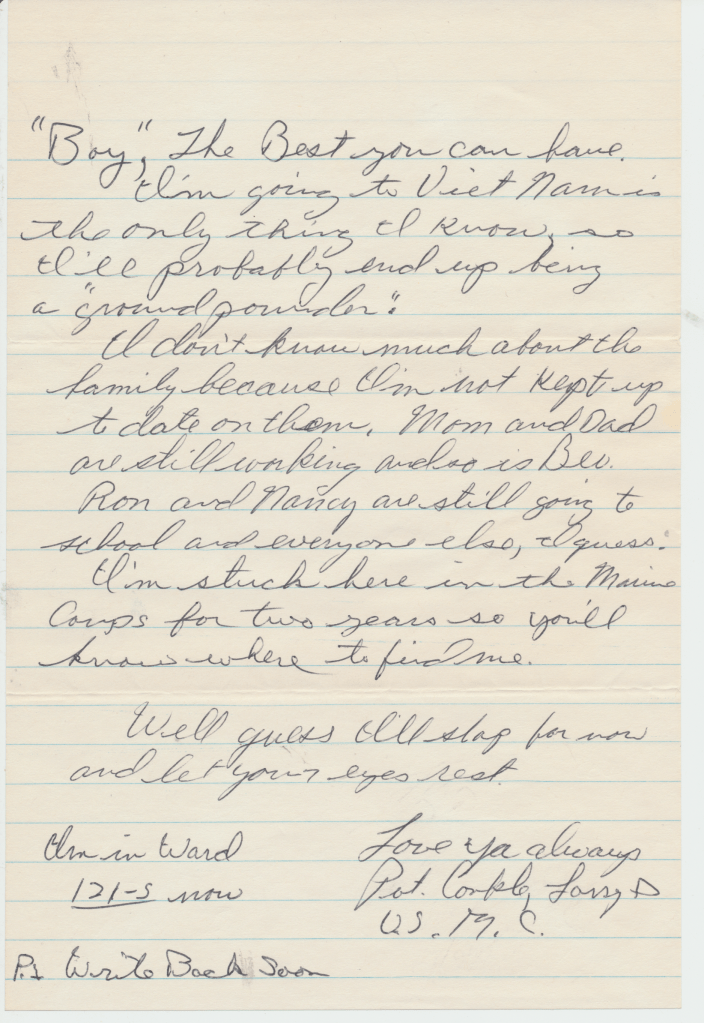 "Boy", The Best you can have.
I'm going to Viet Nam is
the only thing I know, so
I'll probably end up being
a "ground pounder".
I don't know much about the
family because I'm not kept up
to date on them. Mom and Dad
are still working and so is Bev.
Ron and Nancy are still going to
school and everyone else, I guess.
I'm stuck here in the Marine
Corps for two years so you'll
know where to find me.
Well guess I'll stop for now
and let your eyes rest.
I'm in Ward
121-S now
Love ya always
Pvt. Conkle, Larry D
U.S. M. C.
P.S Write Back Soon